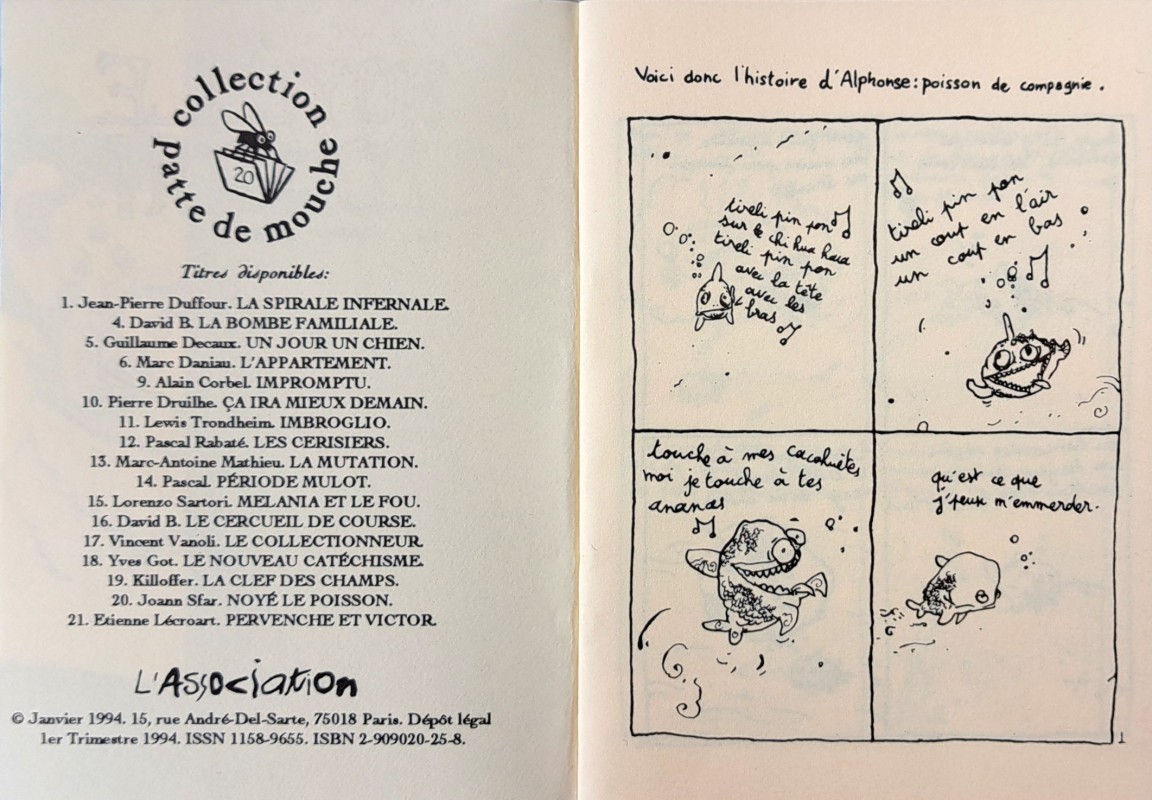 collection
patte de mouche
20
Titres disponibles:
1. Jean-Pierre Duffour. LA SPIRALE INFERNALE.
4. David B. LA BOMBE FAMILIALE.
5. Guillaume Decaux. UN JOUR UN CHIEN.
6. Marc Daniau. L'APPARTEMENT.
9. Alain Corbel. IMPROMPTU.
10. Pierre Druilhe. ÇA IRA MIEUX DEMAIN.
11. Lewis Trondheim. IMBROGLIO.
12. Pascal Rabaté. LES CERISIERS.
13. Marc-Antoine Mathieu. LA MUTATION.
14. Pascal. PÉRIODE MULOT.
15. Lorenzo Sartori. MELANIA ET LE FOU.
16. David B. LE CERCUEIL DE COURSE.
17. Vincent Vanoli. LE COLLECTIONNEUR.
18. Yves Got. LE NOUVEAU CATÉCHISME.
19. Killoffer. LA CLEF DES CHAMPS.
20. Joann Sfar. NOYÉ LE POISSON.
21. Etienne Lécroart. PERVENCHE ET VICTOR.
L'ASSOCIATION
© Janvier 1994. 15, rue André-Del-Sarte, 75018 Paris. Dépôt légal
1er Trimestre 1994. ISSN 1158-9655. ISBN 2-909020-25-8.
Voici donc l'histoire d'Alphonse: poisson de compagnie.
tireli pin pon
sur le chi hua hua
tireli pin pon
avec la tête
avec les
bras
tireli pin pon
un coup en l'air
un coup en bas
touche à mes cacahuètes
moi je touche à tes
ananas
qu'est ce que
j'peux m'emmerder.
1